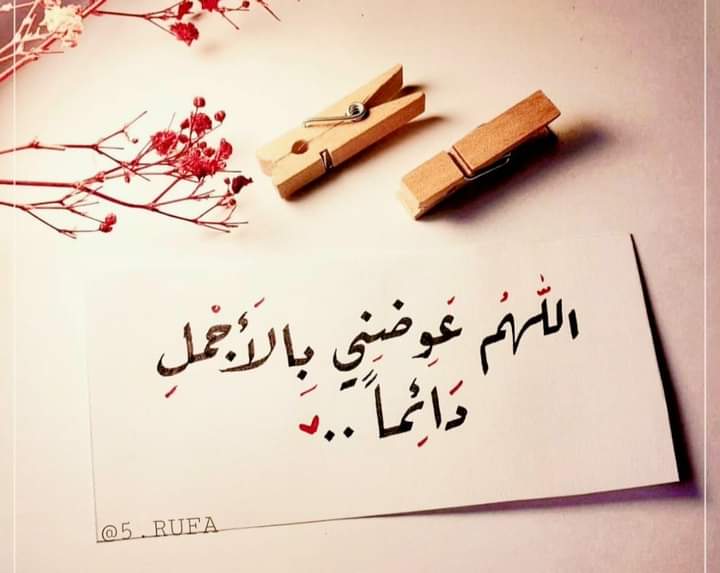 اللّٰهُم عَوِضنِي بِالأَجْملِ
دَائِماً .. ♥
@5.RUFA